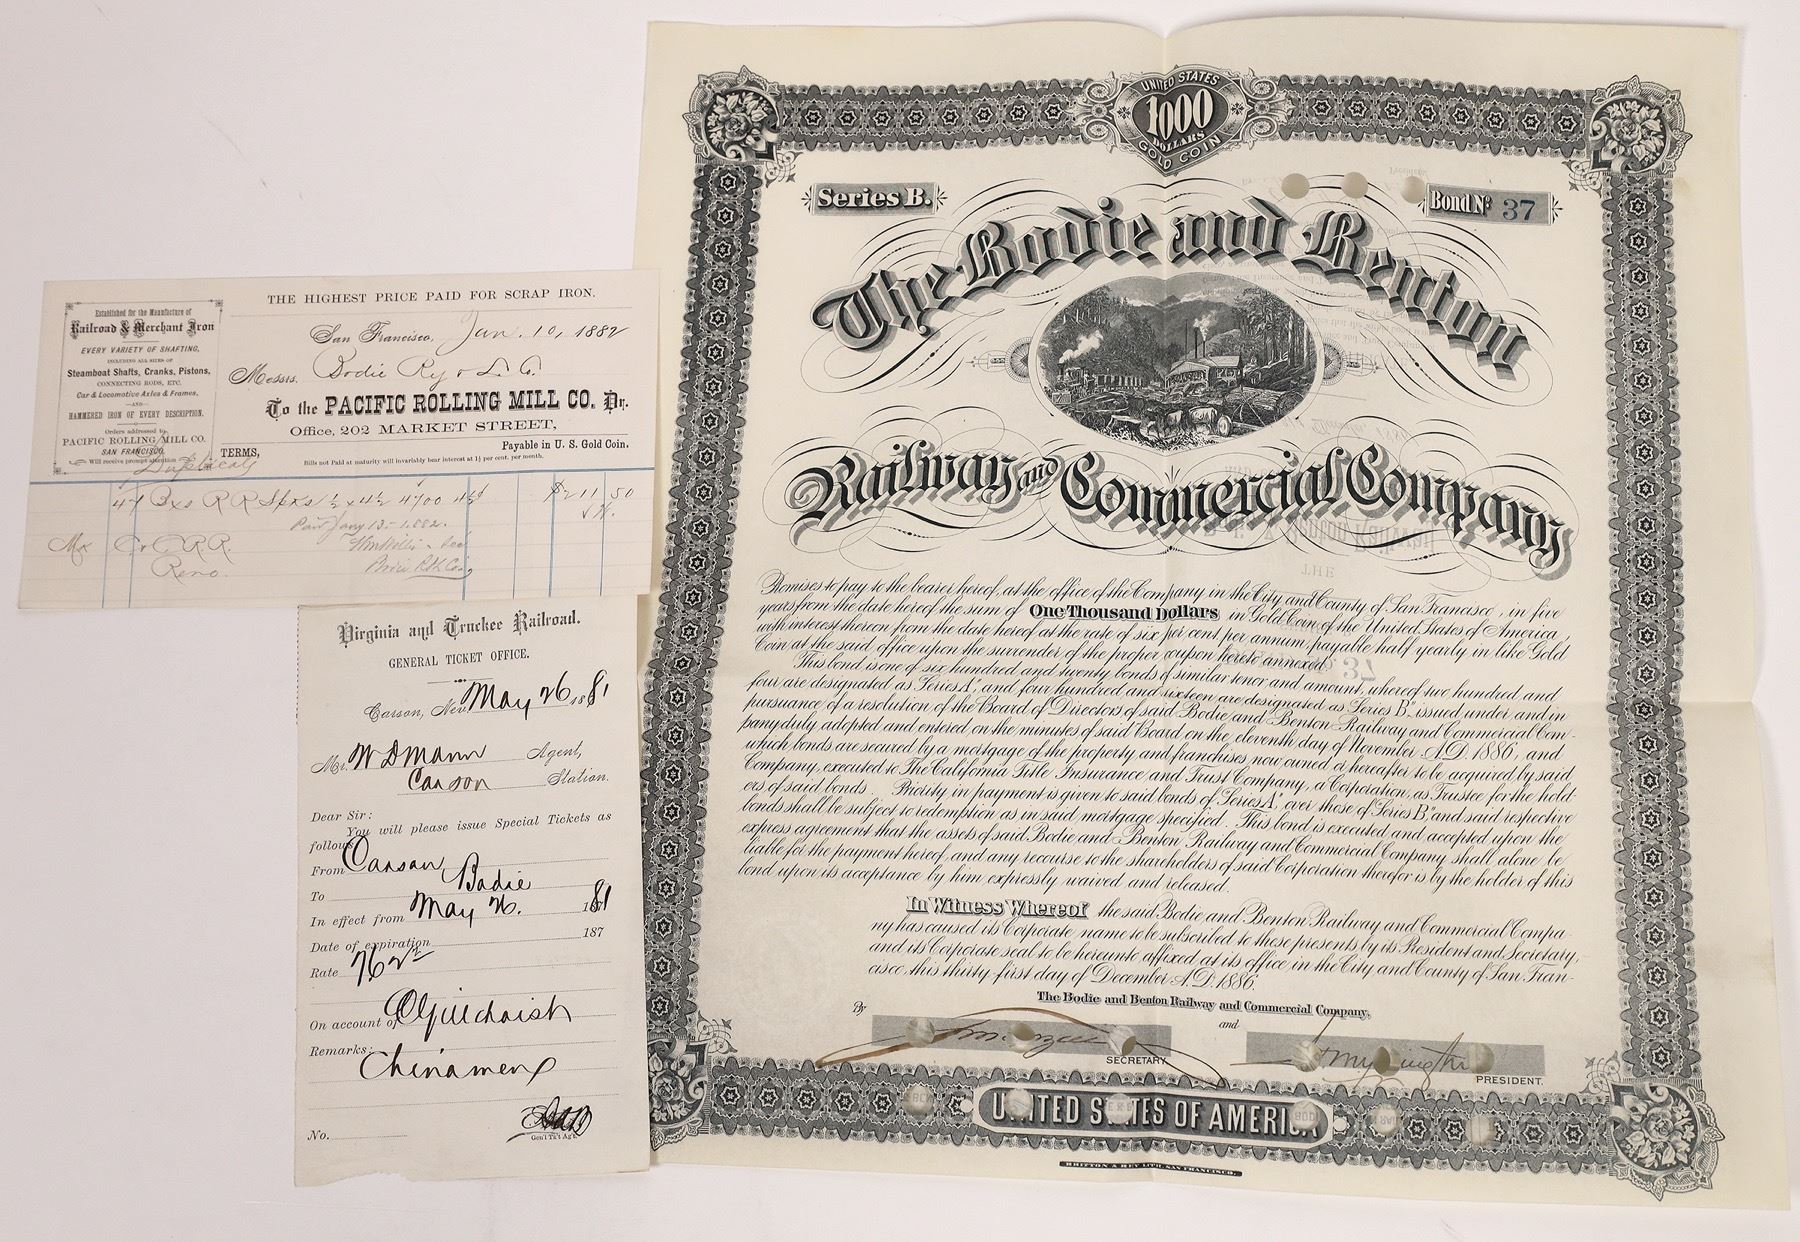 Established for the Manufacture of
Railroad & Merchant Iron
EVERY VARIETY OF SHAFTING,
INCLUDING ALL SIZES OF
Steamboat Shafts, Cranks, Pistons,
CONNECTING RODS, ETC.
Car & Locomotive Axles & Frames,
—AND—
HAMMERED IRON OF EVERY DESCRIPTION.
Orders addressed to
PACIFIC ROLLING MILL CO.
SAN FRANCISCO,
Will receive prompt attention
Duplicate
THE HIGHEST PRICE PAID FOR SCRAP IRON.
San Francisco, Jan. 10, 1882
Messrs. Bodie Ry & L. Co.
To the PACIFIC ROLLING MILL CO. Dr.
Office, 202 MARKET STREET,
TERMS, Payable in U. S. Gold Coin.
Bills not Paid at maturity will invariably bear interest at 1½ per cent. per month.
47 Bxs R R Spks ½ x 4½ 4700 4½¢ $211 50
Paid Jany 13 - 1882.
C. C. R R.
Reno.
Virginia and Truckee Railroad.
GENERAL TICKET OFFICE.
Carson, Nev. May 26 1881
Mr. W D Mann Agent,
Carson Station.
Dear Sir:
You will please issue Special Tickets as
follows
From Carson
To Bodie
In effect from May 26. 1881
Date of expiration 187
Rate
On account of
Remarks: Chinamen
No.
Gen'l T'k't Ag't.
UNITED STATES
1000
DOLLARS
GOLD COIN
Series B.
Bond No. 37
The Bodie and Benton
Railway and Commercial Company
Promises to pay to the bearer hereof, at the office of the Company in the City and County of San Francisco, in five
years from the date hereof the sum of One Thousand Dollars in Gold Coin of the United States of America,
with interest thereon from the date hereof at the rate of six per cent per annum, payable half yearly in like Gold
Coin at the said office upon the surrender of the proper coupon hereto annexed.
This bond is one of six hundred and twenty bonds of similar tenor and amount, whereof two hundred and
four are designated as Series "A", and four hundred and sixteen are designated as Series "B", issued under and in
pursuance of a resolution of the Board of Directors of said Bodie and Benton Railway and Commercial Com-
pany duly adopted and entered on the minutes of said Board on the eleventh day of November A.D. 1886, and
which bonds are secured by a mortgage of the property and franchises now owned or hereafter to be acquired by said
Company, executed to The California Title Insurance and Trust Company, a Corporation, as Trustee for the hold-
ers of said bonds. Priority in payment is given to said bonds of Series "A", over those of Series "B", and said respective
bonds shall be subject to redemption as in said mortgage specified. This bond is executed and accepted upon the
express agreement that the assets of said Bodie and Benton Railway and Commercial Company shall alone be
liable for the payment hereof, and any recourse to the shareholders of said Corporation therefor is by the holder of this
bond upon its acceptance by him expressly waived and released.
In Witness Whereof the said Bodie and Benton Railway and Commercial Compa-
ny has caused its Corporate name to be subscribed to these presents by its President and Secretary,
and its Corporate seal to be hereunto affixed at its office in the City and County of San Fran-
cisco, this thirty first day of December A.D. 1886.
The Bodie and Benton Railway and Commercial Company,
By
and
SECRETARY
PRESIDENT.
UNITED STATES OF AMERICA
BRITTON & REY LITH. SAN FRANCISCO.